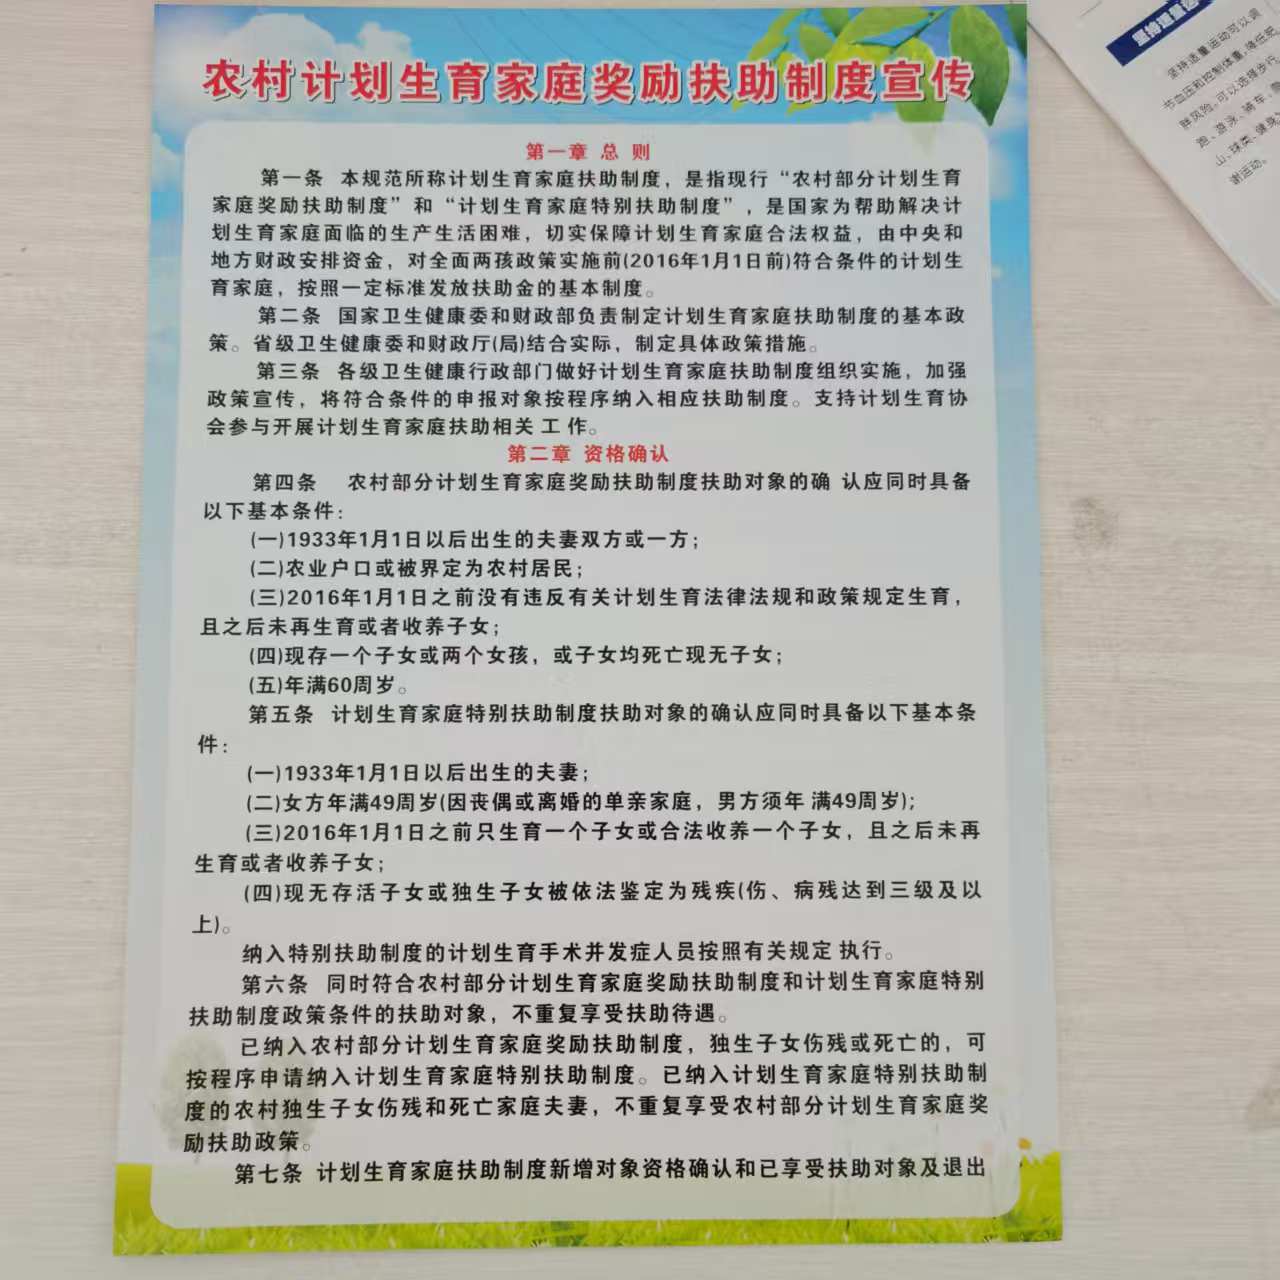 农村计划生育家庭奖励扶助制度宣传
第一章 总 则
第一条 本规范所称计划生育家庭扶助制度，是指现行“农村部分计划生育
家庭奖励扶助制度”和“计划生育家庭特别扶助制度”，是国家为帮助解决计
划生育家庭面临的生产生活困难，切实保障计划生育家庭合法权益，由中央和
地方财政安排资金，对全面两孩政策实施前(2016年1月1日前)符合条件的计划生
育家庭，按照一定标准发放扶助金的基本制度。
第二条 国家卫生健康委和财政部负责制定计划生育家庭扶助制度的基本政
策。省级卫生健康委和财政厅(局)结合实际，制定具体政策措施。
第三条 各级卫生健康行政部门做好计划生育家庭扶助制度组织实施，加强
政策宣传，将符合条件的申报对象按程序纳入相应扶助制度。支持计划生育协
会参与开展计划生育家庭扶助相关 工 作。
第二章 资格确认
第四条 农村部分计划生育家庭奖励扶助制度扶助对象的确 认应同时具备
以下基本条件：
(一)1933年1月1日以后出生的夫妻双方或一方；
(二)农业户口或被界定为农村居民；
(三)2016年1月1日之前没有违反有关计划生育法律法规和政策规定生育，
且之后未再生育或者收养子女；
(四)现存一个子女或两个女孩，或子女均死亡现无子女；
(五)年满60周岁。
第五条 计划生育家庭特别扶助制度扶助对象的确认应同时具备以下基本条
件：
(一)1933年1月1日以后出生的夫妻；
(二)女方年满49周岁(因丧偶或离婚的单亲家庭，男方须年 满49周岁)；
(三)2016年1月1日之前只生育一个子女或合法收养一个子女，且之后未再
生育或者收养子女；
(四)现无存活子女或独生子女被依法鉴定为残疾(伤、病残达到三级及以
上)。
纳入特别扶助制度的计划生育手术并发症人员按照有关规定 执行。
第六条 同时符合农村部分计划生育家庭奖励扶助制度和计划生育家庭特别
扶助制度政策条件的扶助对象，不重复享受扶助待遇。
已纳入农村部分计划生育家庭奖励扶助制度，独生子女伤残或死亡的，可
按程序申请纳入计划生育家庭特别扶助制度。已纳入计划生育家庭特别扶助制
度的农村独生子女伤残和死亡家庭夫妻，不重复享受农村部分计划生育家庭奖
励扶助政策。
第七条 计划生育家庭扶助制度新增对象资格确认和已享受扶助对象及退出
坚持适量运动可以调
节血压和控制体重，降低肥
胖风险。可以选择步行、
跑、游泳、骑车、
山、球类、健身
谢运动。